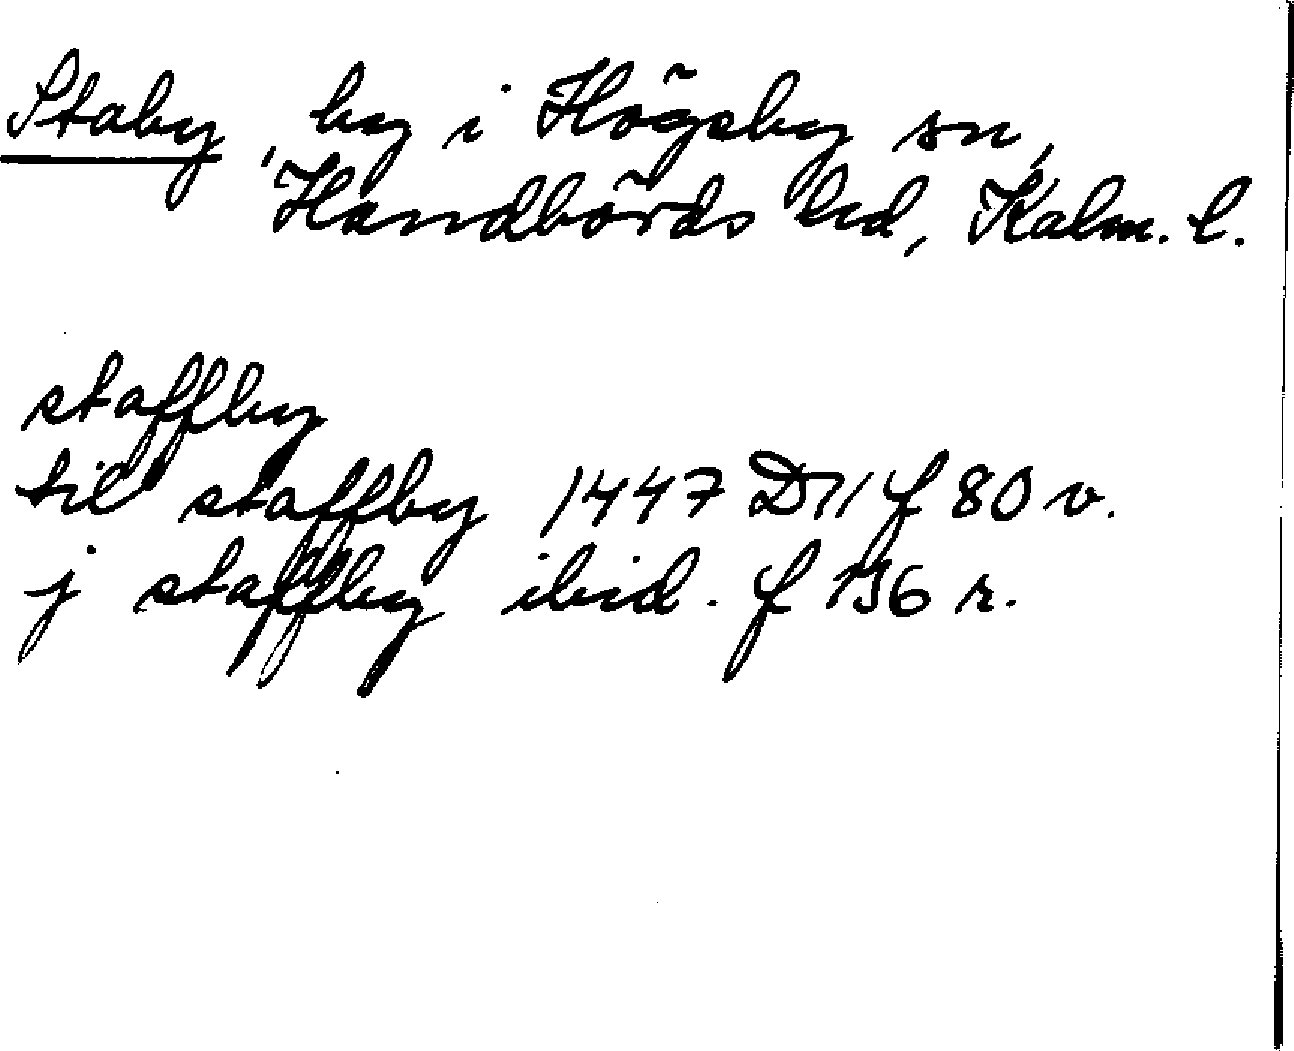 Staby, by i Högsby sn,
Handbörds hd, Kalm. l.
staffby
til staffby 1447 D11 f 80 v.
j staffby ibid. f 156 r.